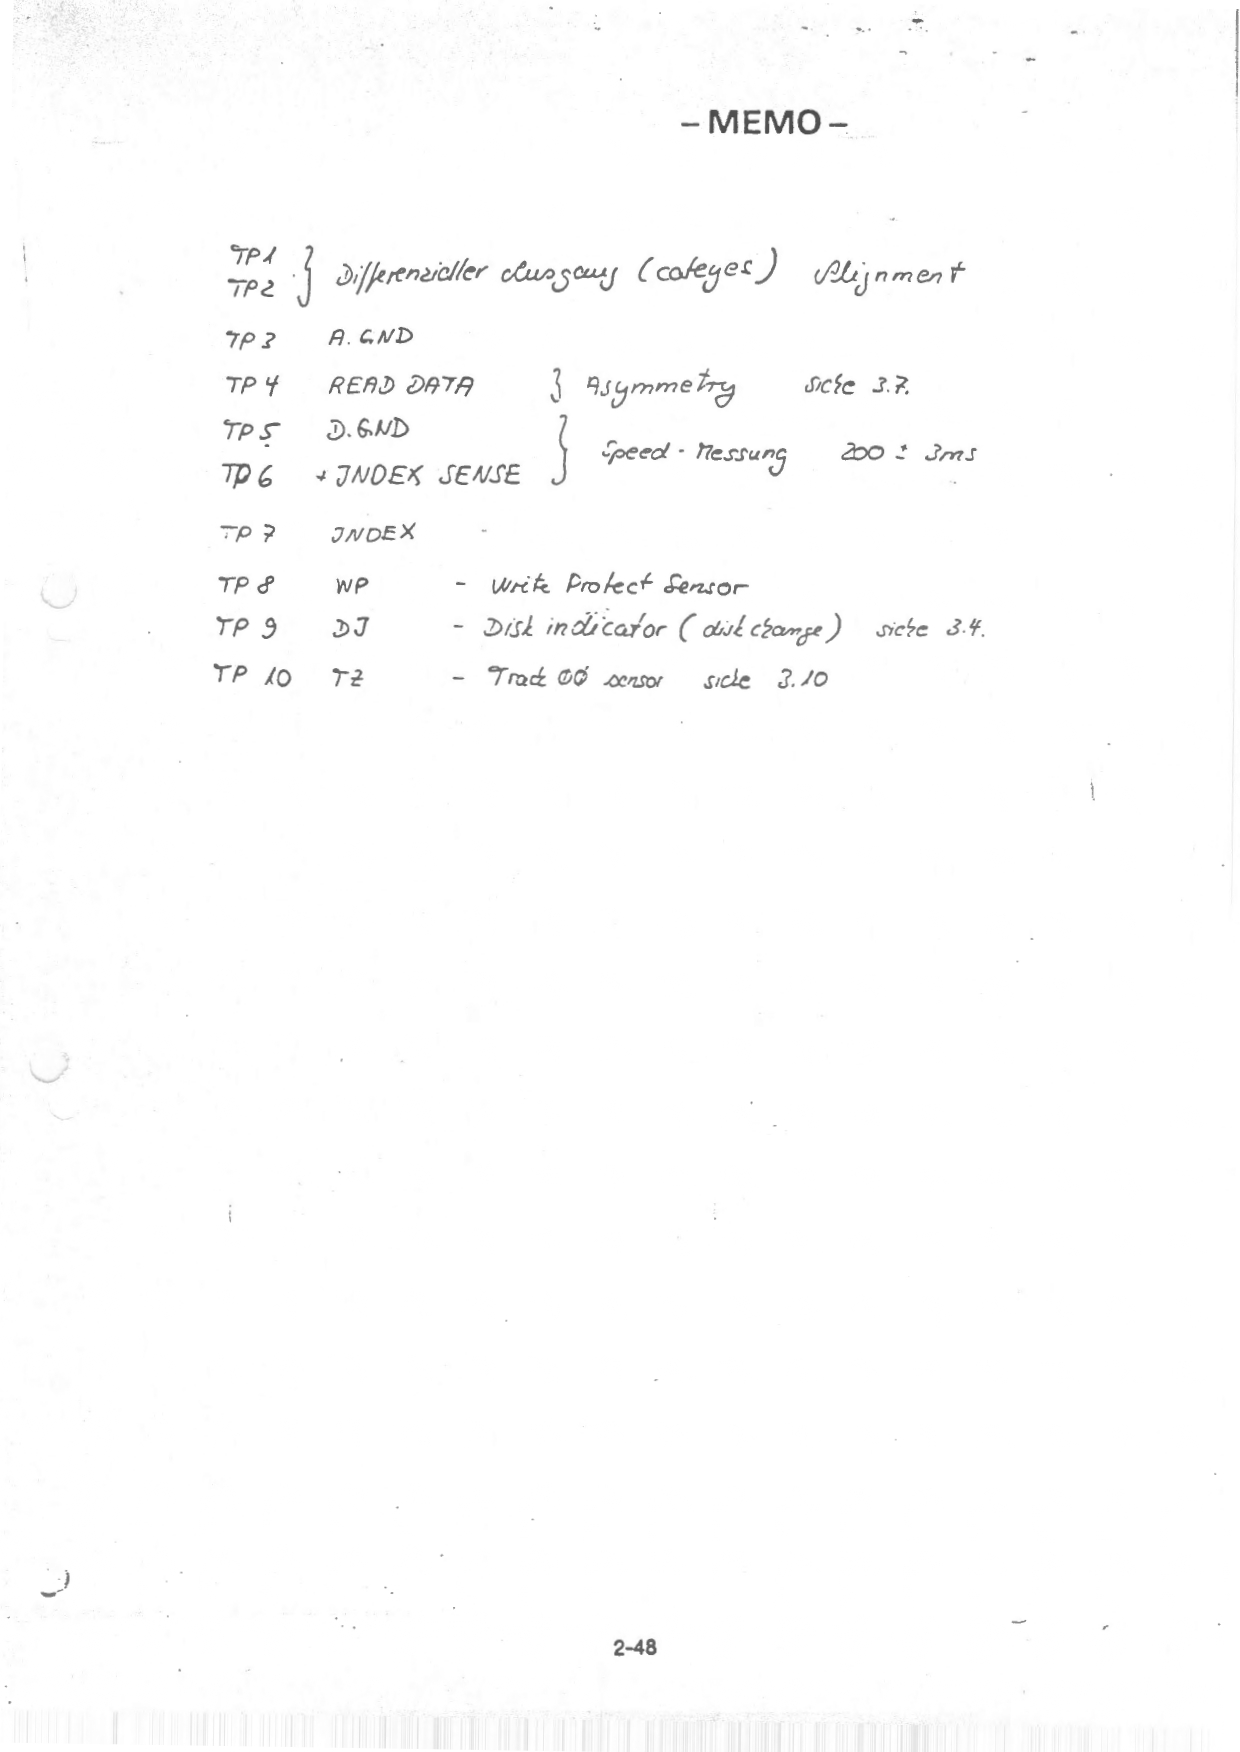 – MEMO –
TP1
TP2 } Differenzieller Ausgang (cateyes) Alignment
TP3 A. GND
TP4 READ DATA } Asymmetry siehe 3.7.
TP5 D. GND
TP6 + INDEX SENSE } Speed - Messung 200 ± 3ms
TP7 INDEX -
TP8 WP - Write Protect Sensor
TP9 DI - Disk indicator (disk change) siehe 3.4.
TP 10 TZ - Track 00 sensor siehe 3.10
2-48